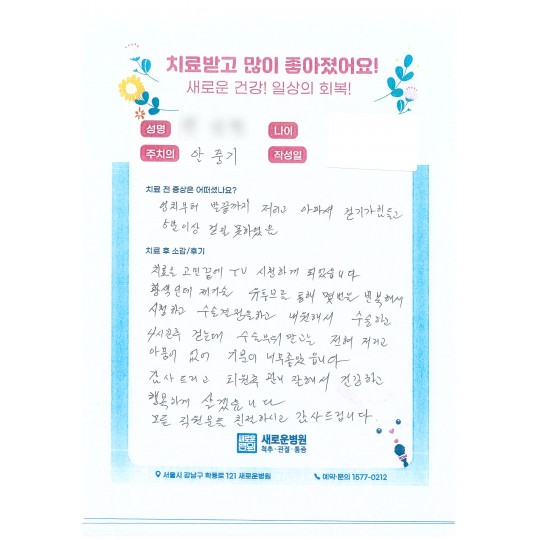 치료받고 많이 좋아졌어요!
새로운 건강! 일상의 회복!
성명
나이
주치의 안 중기
작성일
치료 전 증상은 어떠셨나요?
엉치부터 발끝까지 저리고 아파서 걷기가 힘들고
5분이상 걷질 못하였음
치료 후 소감/후기
치료을 고민끝에 TV 시청하게 되었습니다
유투브를 통해 몇번을 반복해서
시청하고 수술결정을하고 내원해서 수술하고
4시간후 걷는데 수술부위 만고는 전혀 저리고
아픔이 없어 기분이 너무좋았습니다
감사드리고 퇴원후 관리 잘해서 건강하고
행복하게 살겠습니다
모든 직원분들 친절하시고 감사드립니다.
새로운병원
척추·관절·통증
서울시 강남구 학동로 121 새로운병원
예약·문의 1577-0212